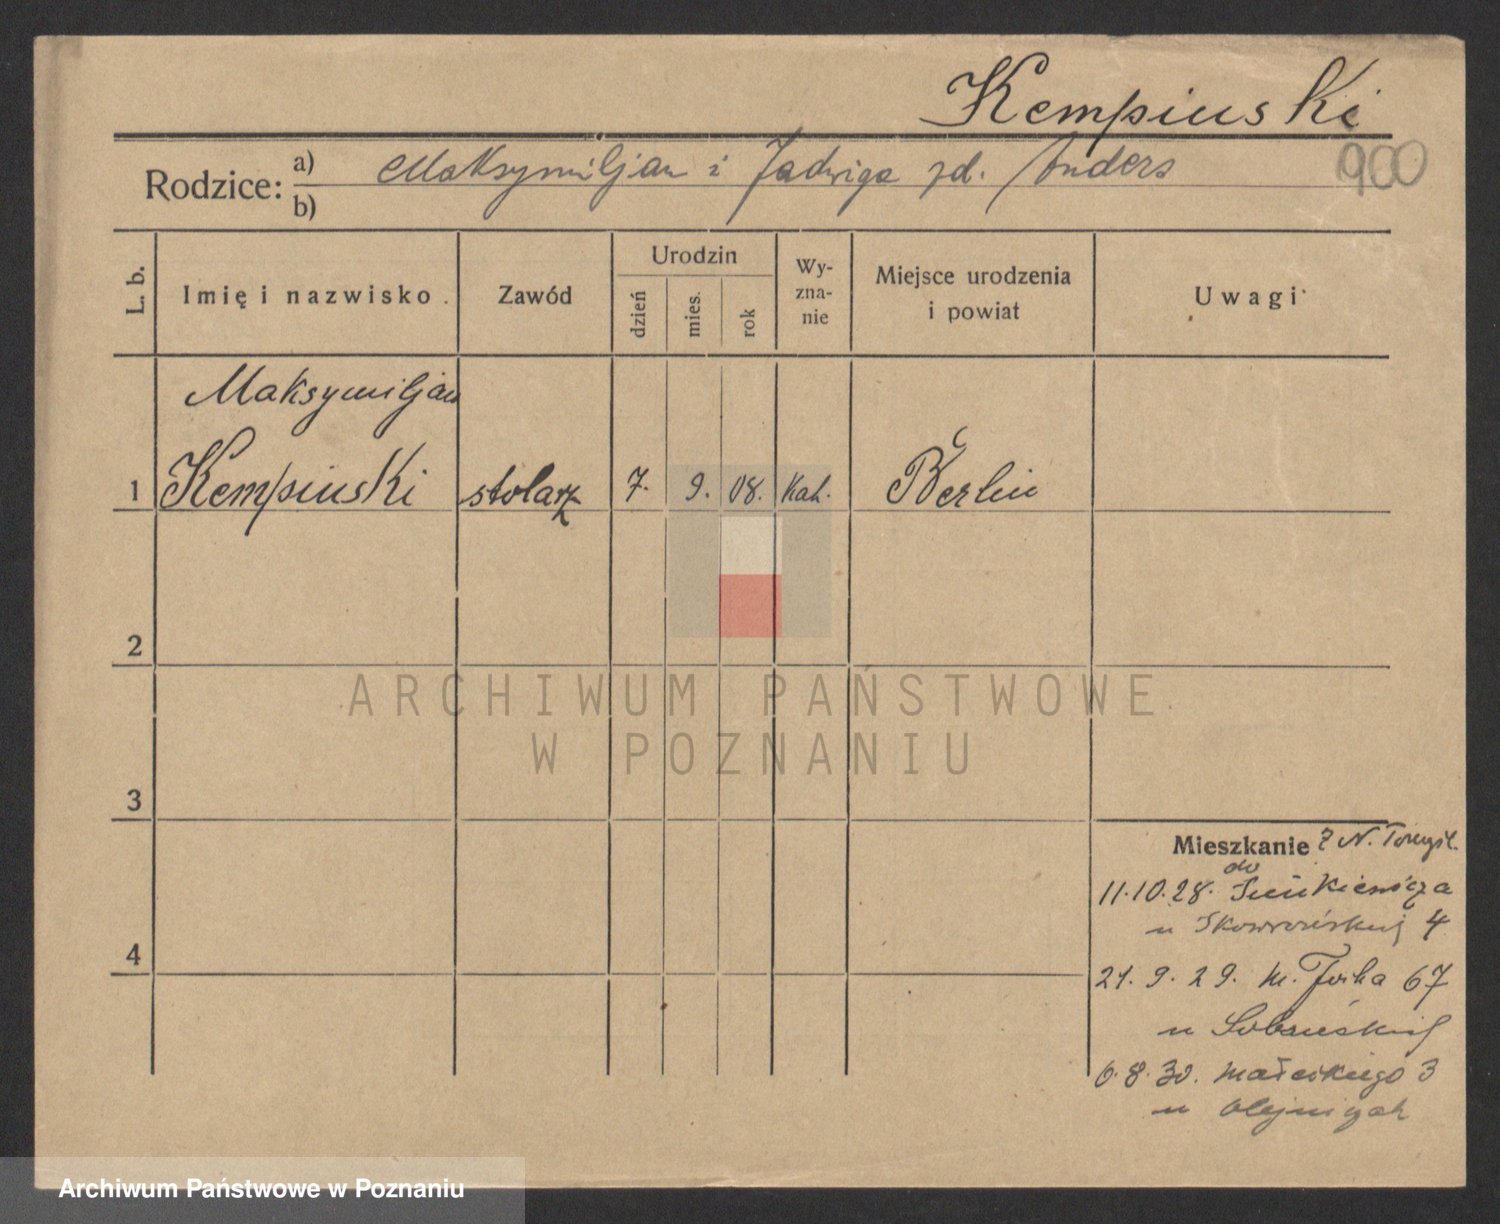 Kempinski
900
Rodzice: a) Maksymiljan i Jadwiga zd. Anders
b)
L. b.
Imię i nazwisko
Zawód
Urodzin
dzień
mies.
rok
Wy-
zna-
nie
Miejsce urodzenia
i powiat
Uwagi
Maksymiljan
1 Kempinski stolarz 7. 9. 08. Kat. Berlin
2
ARCHIWUM PAŃSTWOWE
W POZNANIU
3
Mieszkanie z N. Tomyśl.
11.10.28. do Sienkiewicza
u Skowrońskiej 4
4
21. 9. 29. M. Focha 67
u
6. 8. 30. Małeckiego 3
u
Archiwum Państwowe w Poznaniu